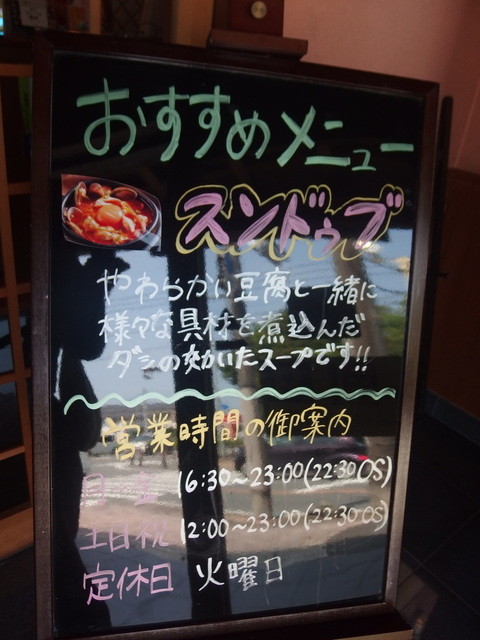 おすすめメニュー
スンドゥブ
やわらかい豆腐と一緒に
様々な具材を煮込んだ
ダシの効いたスープです!!
営業時間の御案内
月〜金 16:30〜23:00(22:30OS)
土日祝 12:00〜23:00(22:30OS)
定休日 火曜日